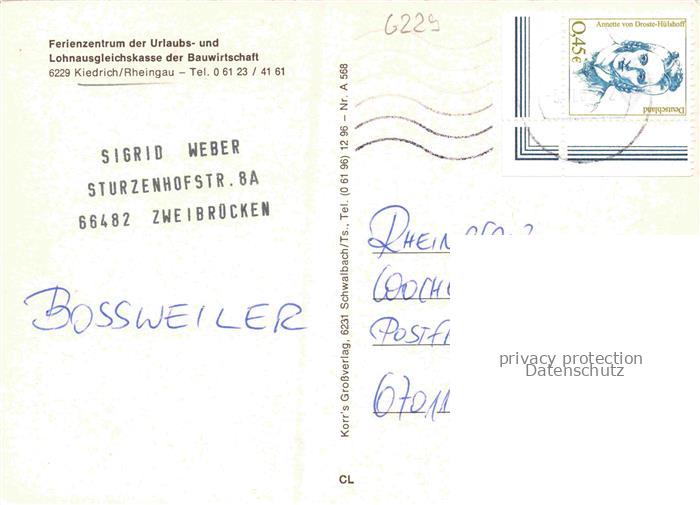 6229
Ferienzentrum der Urlaubs- und
Lohnausgleichskasse der Bauwirtschaft
6229 Kiedrich/Rheingau – Tel. 0 61 23 / 41 61
SIGRID WEBER
STURZENHOFSTR. 8A
66482 ZWEIBRÜCKEN
BOSSWEILER
Korr's Großverlag, 6231 Schwalbach/Ts., Tel. (0 61 96) 12 96 – Nr. A 568
CL
Annette von Droste-Hülshoff
0,45€
Deutschland
RHEIN
WOCH
POSTF
67011
privacy protection
Datenschutz